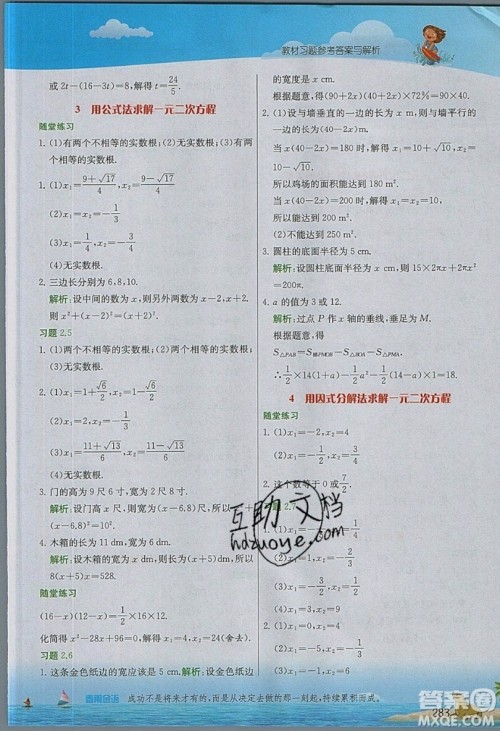 教材习题参考答案与解析
或 2t-(16-3t)=8,解得 t=24/5.
3 用公式法求解一元二次方程
随堂练习
1. (1)有两个不相等的实数根;(2)无实数根;(3)有两个相等的实数根.
1. (1)x₁=(9+√17)/4, x₂=(9-√17)/4
(2)x₁=x₂=-1/3
(3)x₁=1/4, x₂=-3/4
(4)无实数根.
2. 三边长分别为 6,8,10.
解析:设中间的数为 x,则另外两数为 x-2,x+2.
则 x²+(x-2)²=(x+2)².
习题 2.5
1. (1)两个不相等的实数根;(2)两个相等的实数根.
2. (1)x₁=1+√6/2, x₂=1-√6/2
(2)x₁=x₂=2/3
(3)x₁=(11+√13)/6, x₂=(11-√13)/6
(4)无实数根.
3. 门的高为 9 尺 6 寸,宽为 2 尺 8 寸.
解析:设门高 x 尺,则宽为(x-6.8)尺,所以 x²+
(x-6.8)²=10².
4. 木箱的长为 11 dm,宽为 6 dm.
解析:设木箱的宽为 x dm,则长为(x+5)dm,所以
8(x+5)x=528.
随堂练习
(16-x)(12-x)=1/2×16×12.
化简得 x²-28x+96=0,解得 x=4,x=24(舍去).
习题 2.6
1. 这条金色纸边的宽应该是 5 cm. 解析:设金色纸边
的宽度是 x cm.
根据题意,得(90+2x)(40+2x)×72%=90×40.
2. (1)设与墙垂直的一边的长为 x m,则与墙平行的
一边的长为(40-2x)m.
当 x(40-2x)=180 时,解得 x=10±√10.
所以鸡场的面积能达到 180 m².
当 x(40-2x)=200 时,解得 x=10.
所以能达到 200 m².
(2)不能达到 250 m².
3. 圆柱的底面半径为 5 cm.
解析:设圆柱底面半径为 x cm,则 15×2πx+2πx²
=200π.
4. a 的值为 3 或 12.
解析:过点 P 作 x 轴的垂线,垂足为 M.
根据题意,得
∴1/2×14(1+a)-1/2a²-1/2(14-a)×1=18.
4 用因式分解法求解一元二次方程
随堂练习
1. (1)x₁=-2, x₂=4
2. 这个数等于 0 或 7/2.
习题 2.7
互助文档
hdzuoye.com
(4)x₁=-4, x₂=2
音雨金语 成功不是将来才有的,而是从决定去做的那一刻起,持续累积而成。
283
答案圈
MXQE.COM